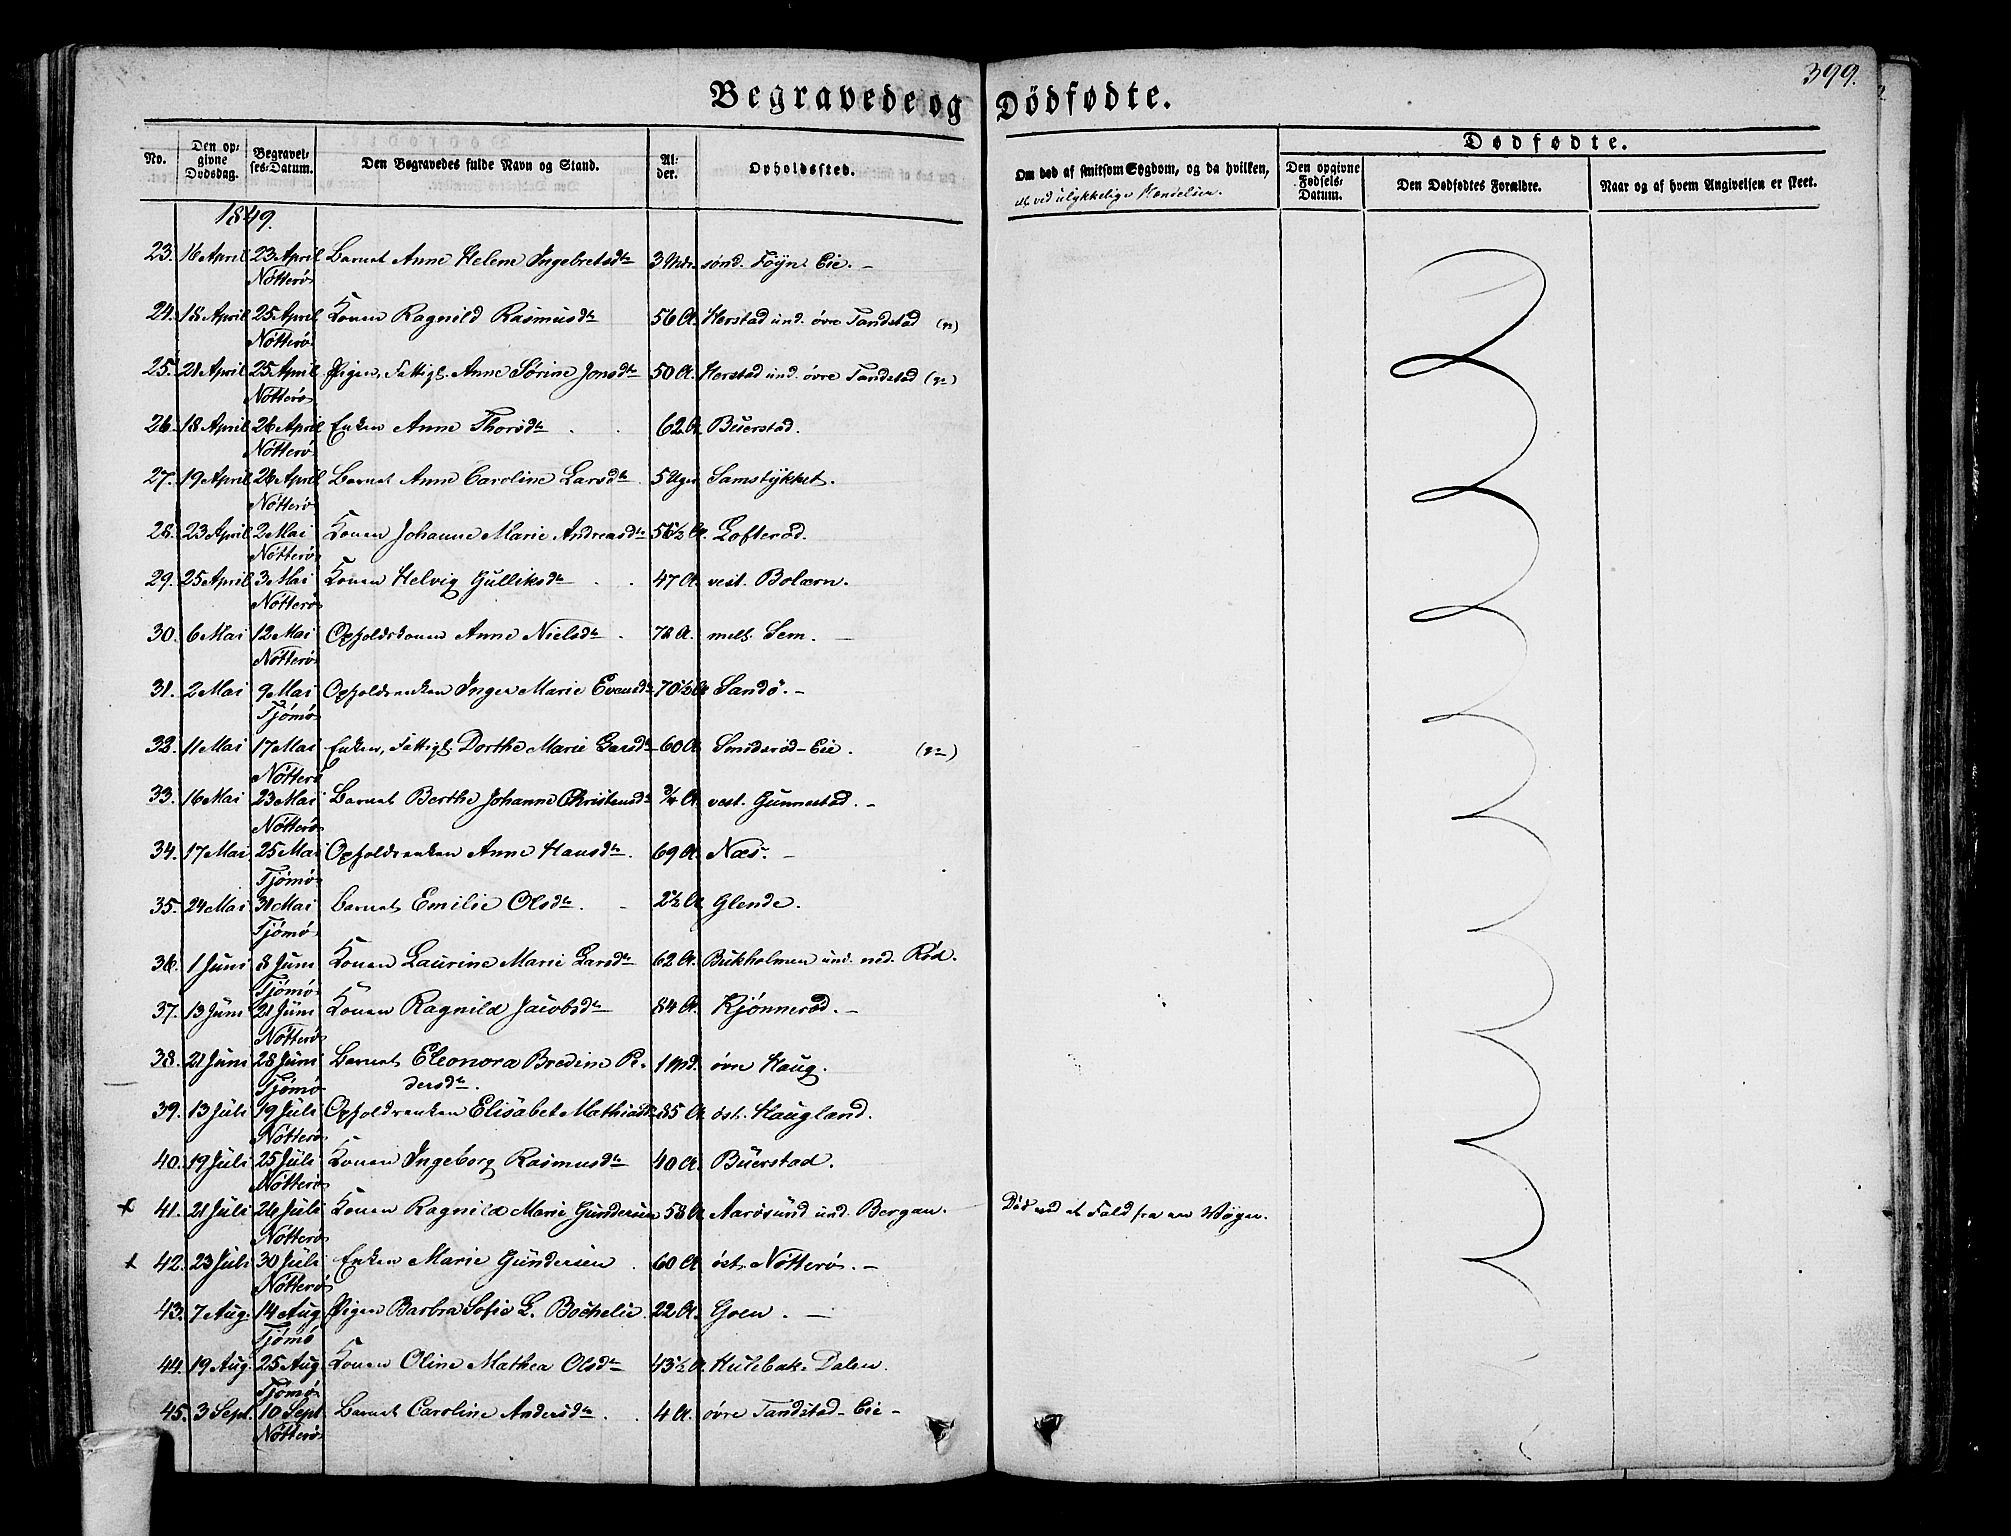 399.
Begravede og Dödfødte.
No. Den opgivne Dødsdag. Begravelses-Datum. Den Begravedes fulde Navn og Stand. Alder. Opholdssted. Om død af smitsom Sygdom, og da hvilken, el. ved ulykkelige Hændelser.
Dødfødte.
Den opgivne Fødsels-Datum. Den Dødfødtes Forældre. Naar og af hvem Angivelsen er skeet.
1849.
23. 16 April 23 April Barnet Anne Helene Ingebretsdtr 3 Mdr. sønd. Föyn Eie. –
Nötterö
24. 18 April 25 April Konen Ragnild Rasmusdtr 56 A. Herstad und. övre Tandstad
Nötterö
25. 21 April 25 April Pigen, Fattigl. Anne Sörine Jonsdtr 50 A. Herstad und. övre Tandstad
Nötterö
26. 18 April 26 April Enken Anne Thorsdtr 62 A. Buerstad.
Nötterö
27. 19 April 26 April Barnet Anne Caroline Larsdtr 5 Uger Samstykket.
Nötterö
28. 23 April 2 Mai Konen Johanne Marie Andreasdtr 56½ A. Lofteröd.
Nötterö
29. 25 April 3 Mai Konen Helvig Gulliksdtr 47 A. vest. Bolærn.
Nötterö
30. 6 Mai 12 Mai Opholdskonen Anne Nielsdtr 72 A. mell. Sem. –
Nötterö
31. 2 Mai 9 Mai Opholdsenken Inger Marie Evensdtr 70½ A Sandö. –
Tjömö
32. 11 Mai 17 Mai Enken, Fattigl. Dorthe Marie Larsdtr 60 A Smidsröd-Eie.
Nötterö
33. 16 Mai 23 Mai Barnet Berthe Johanne Christensdtr ¾ A. vest. Gunnestad. –
Nötterö
34. 17 Mai 25 Mai Opholdsenken Anne Hansdtr. 69 A. Næs. –
Tjömö
35. 24 Mai 31 Mai Barnet Emilie Olsdtr. 2½ A Glende.
Tjömö
36. 1 Juni 8 Juni Konen Laurine Marie Larsdtr 62 A. Bukholmen und. ned. Röd.
Tjömö
37. 13 Juni 21 Juni Konen Ragnild Jacobsdtr 84 A. Kjönneröd. –
Nötterö
38. 21 Juni 28 Juni Barnet Eleonora Bredine Pe- 1 Md. övre Haug.
Tjömö dersdtr.
39. 13 Juli 19 Juli Opholdsenken Elisabet Mathiasdtr 85 A öst. Haugland.
Nötterö
40. 19 Juli 25 Juli Konen Ingeborg Rasmusdtr 40 A. Buerstad.
Nötterö
41. 21 Juli 26 Juli Konen Ragnild Marie Gundersen 58 A. Aarösund und. Bergan. Död ved et Fald fra en Vogn.
Nötterö
42. 23 Juli 30 Juli Enken Marie Gundersen 60 A. öst. Nötterö. –
Nötterö
43. 7 Aug. 14 Aug Pigen Barbra Sofie L. Bochelie 22 A. Goen. –
Tjömö
44. 19 Aug. 25 Aug Konen Oline Mathea Olsdtr 43½ A Kulebak-Dalen.
Tjömö
45. 3 Sept. 10 Sept Barnet Caroline Andersdtr 4 A. övre Tandstad-Eie –
Nötterö